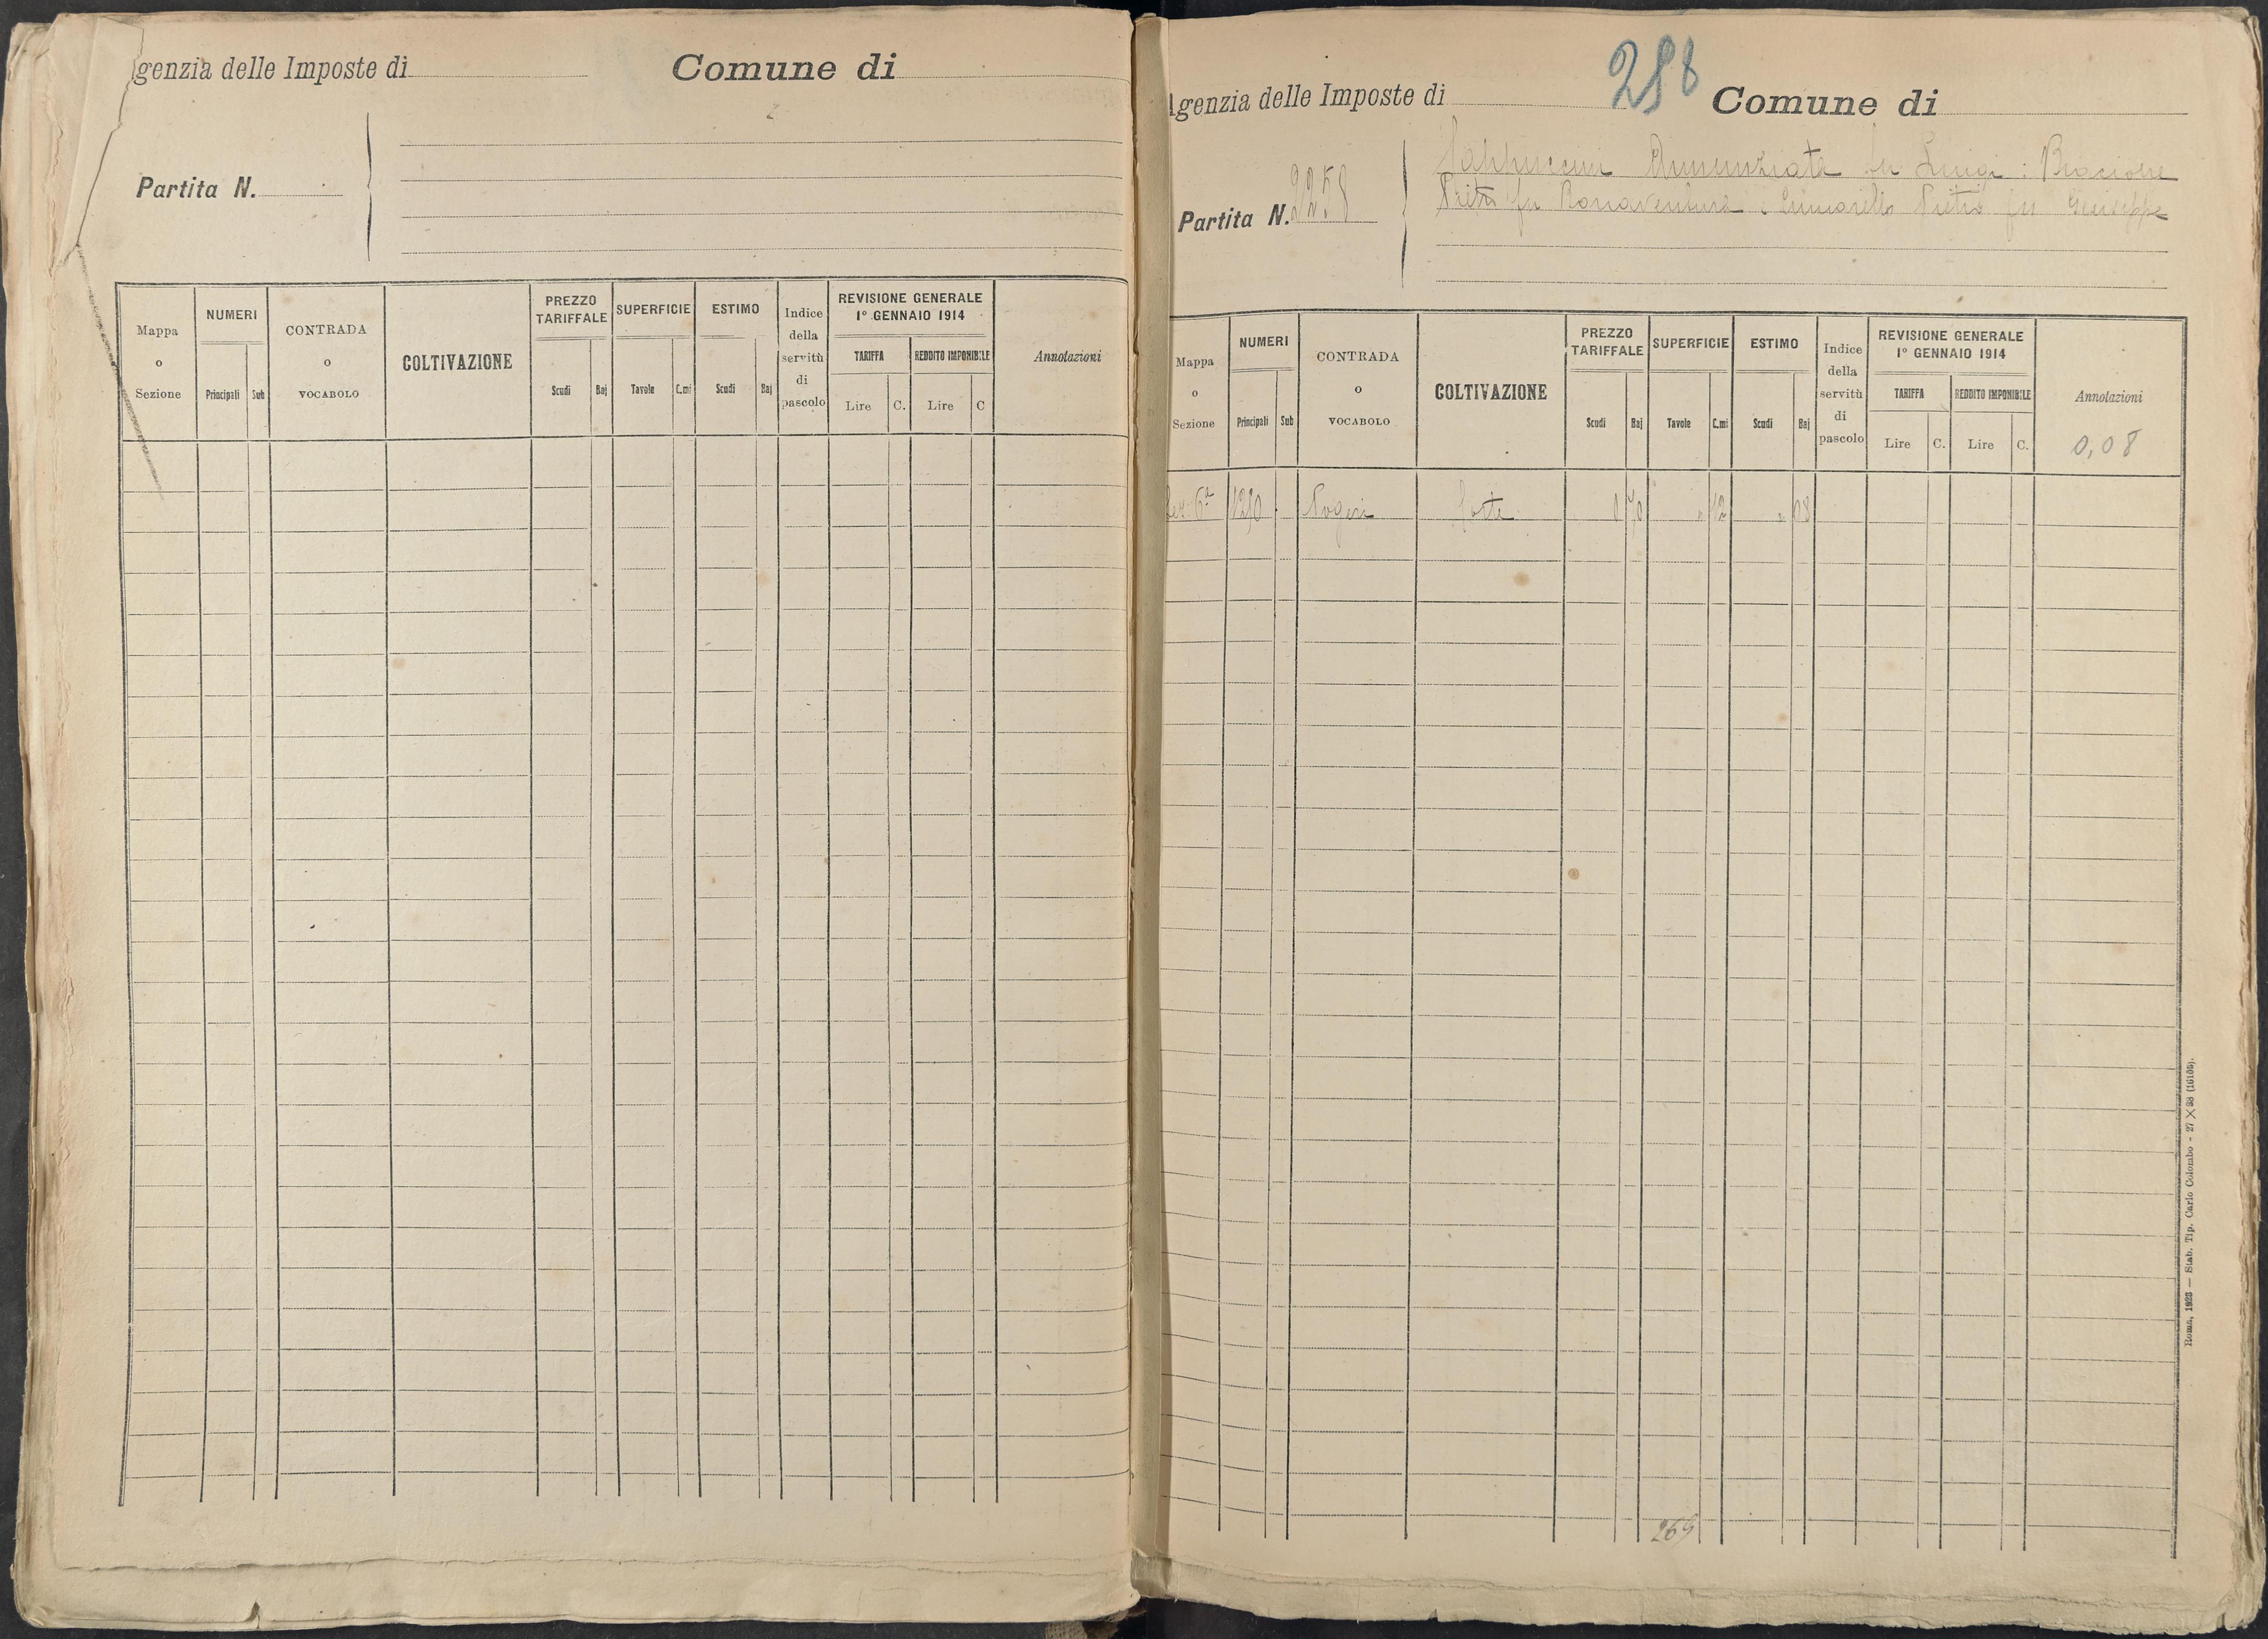 genzia delle Imposte di Comune di
Partita N.
Mappa o Sezione
NUMERI
Principali Sub
CONTRADA o VOCABOLO
COLTIVAZIONE
PREZZO TARIFFALE
Scudi Baj
SUPERFICIE
Tavole C.mi
ESTIMO
Scudi Baj
Indice della servitù di pascolo
REVISIONE GENERALE
1° GENNAIO 1914
TARIFFA REDDITO IMPONIBILE
Lire C. Lire C
Annotazioni
288
Agenzia delle Imposte di Comune di
Annunziata fu Luigi : Bracione
Pietro fu Bonaventura : Pietro fu Giuseppe
Partita N. 2258
Mappa o Sezione
NUMERI
Principali Sub
CONTRADA o VOCABOLO
COLTIVAZIONE
PREZZO TARIFFALE
Scudi Baj
SUPERFICIE
Tavole C.mi
ESTIMO
Scudi Baj
Indice della servitù di pascolo
REVISIONE GENERALE
1° GENNAIO 1914
TARIFFA REDDITO IMPONIBILE
Lire C. Lire C.
Annotazioni
0,08
Sez. 6ª 1210 70 12 08
269
Roma, 1923 — Stab. Tip. Carlo Colombo - 27 X 38 (16105).